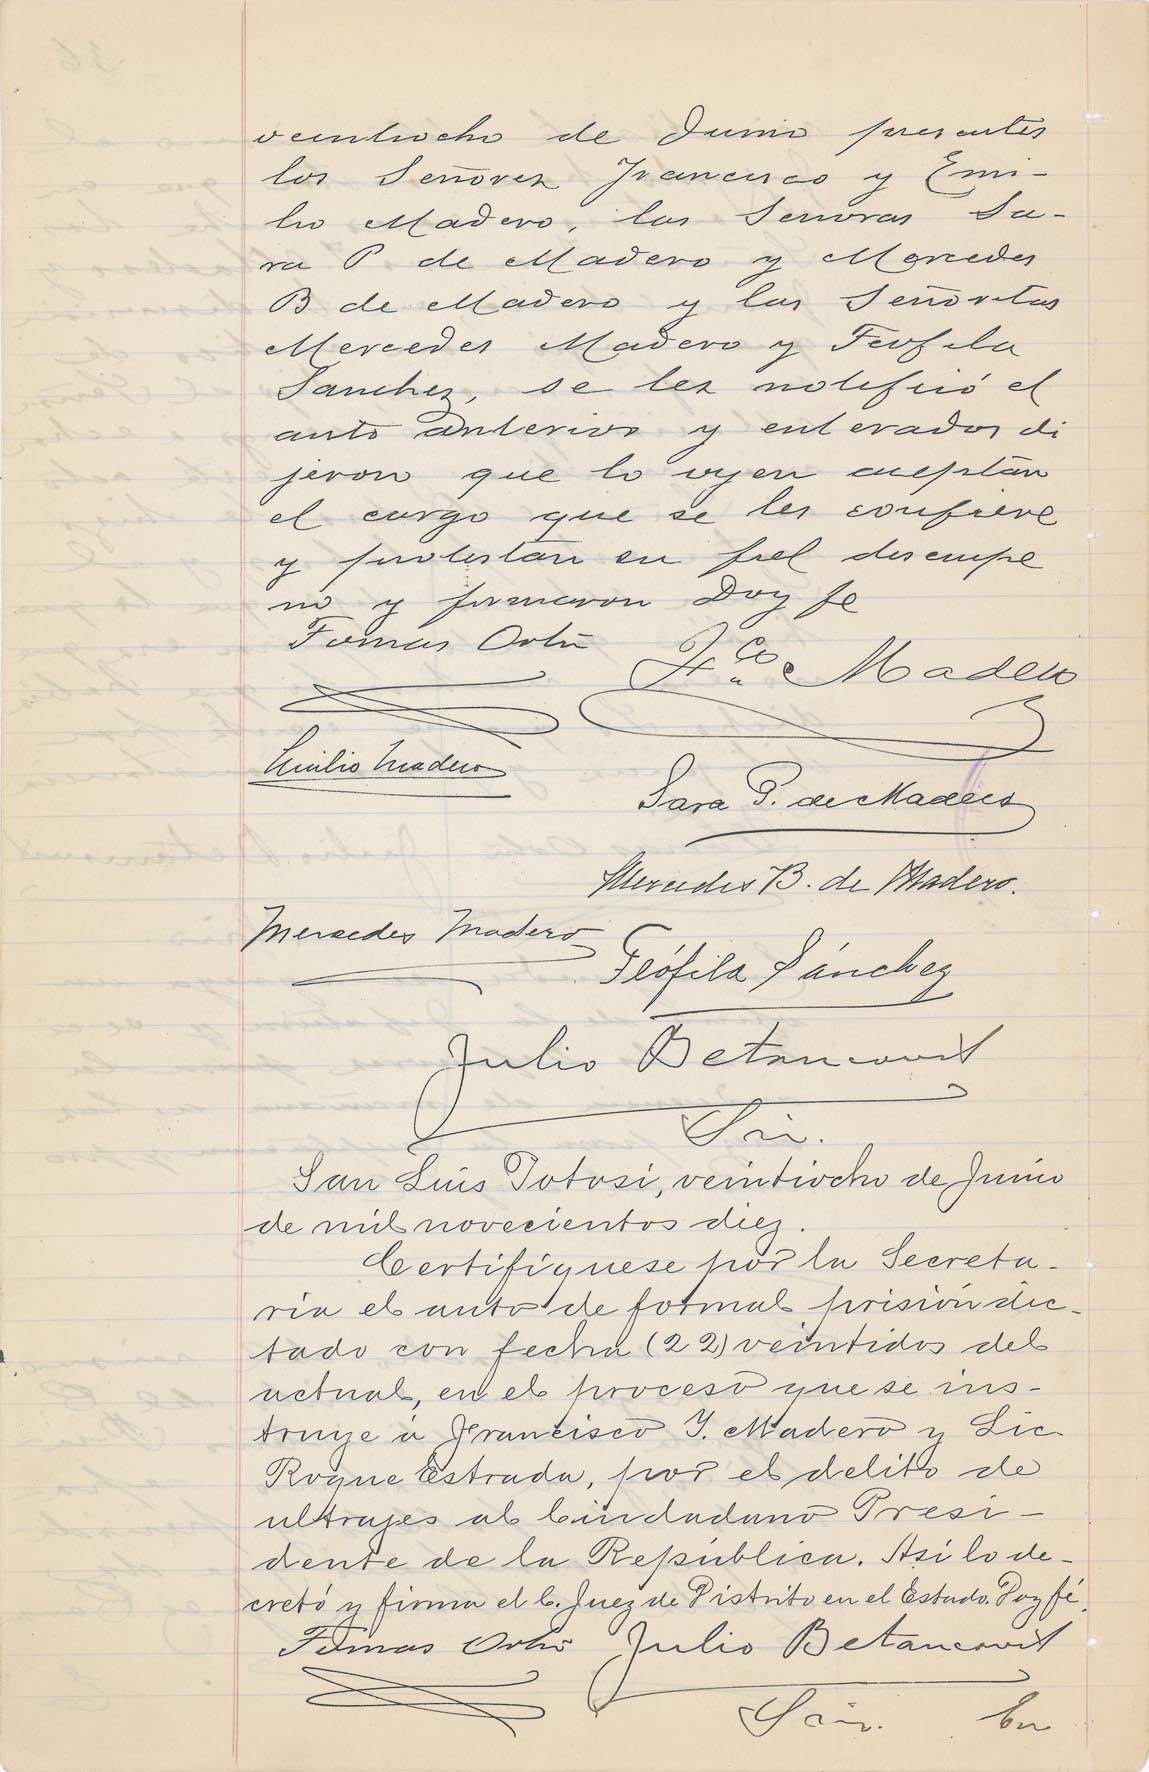 veintiocho de Junio presentes
los Señores Francisco y Emi-
lio Madero, las Senoras Sa-
ra P de Madero y Mercedes
B de Madero y las Señoritas
Mercedes Madero y Teofila
Sanchez, se les notificó el
auto anterior y enterados di
jeron que lo oyen aceptan
el cargo que se les confiere
y protestan su fiel desempe
no y firmaron Doy fe
Tomas Ortiz Fco. Madero
Emilio Madero
Sara P. de Madero
Mercedes B. de Madero.
Mercedes Madero
Teófila Sánchez
Julio Betancourt
Srio.
San Luis Potosi, veintiocho de Junio
de mil novecientos diez.
Certifíquese por la Secreta-
ria el auto de formal prisión dic-
tado con fecha (22) veintidos del
actual, en el proceso que se ins-
truye á Francisco I. Madero y Lic.
Roque Estrada, por el delito de
ultrajes al Ciudadano Presi-
dente de la República. Asi lo de-
cretó y firma el C. Juez de Distrito en el Estado. Doy fé.
Tomas Ortiz Julio Betancourt
Srio. En